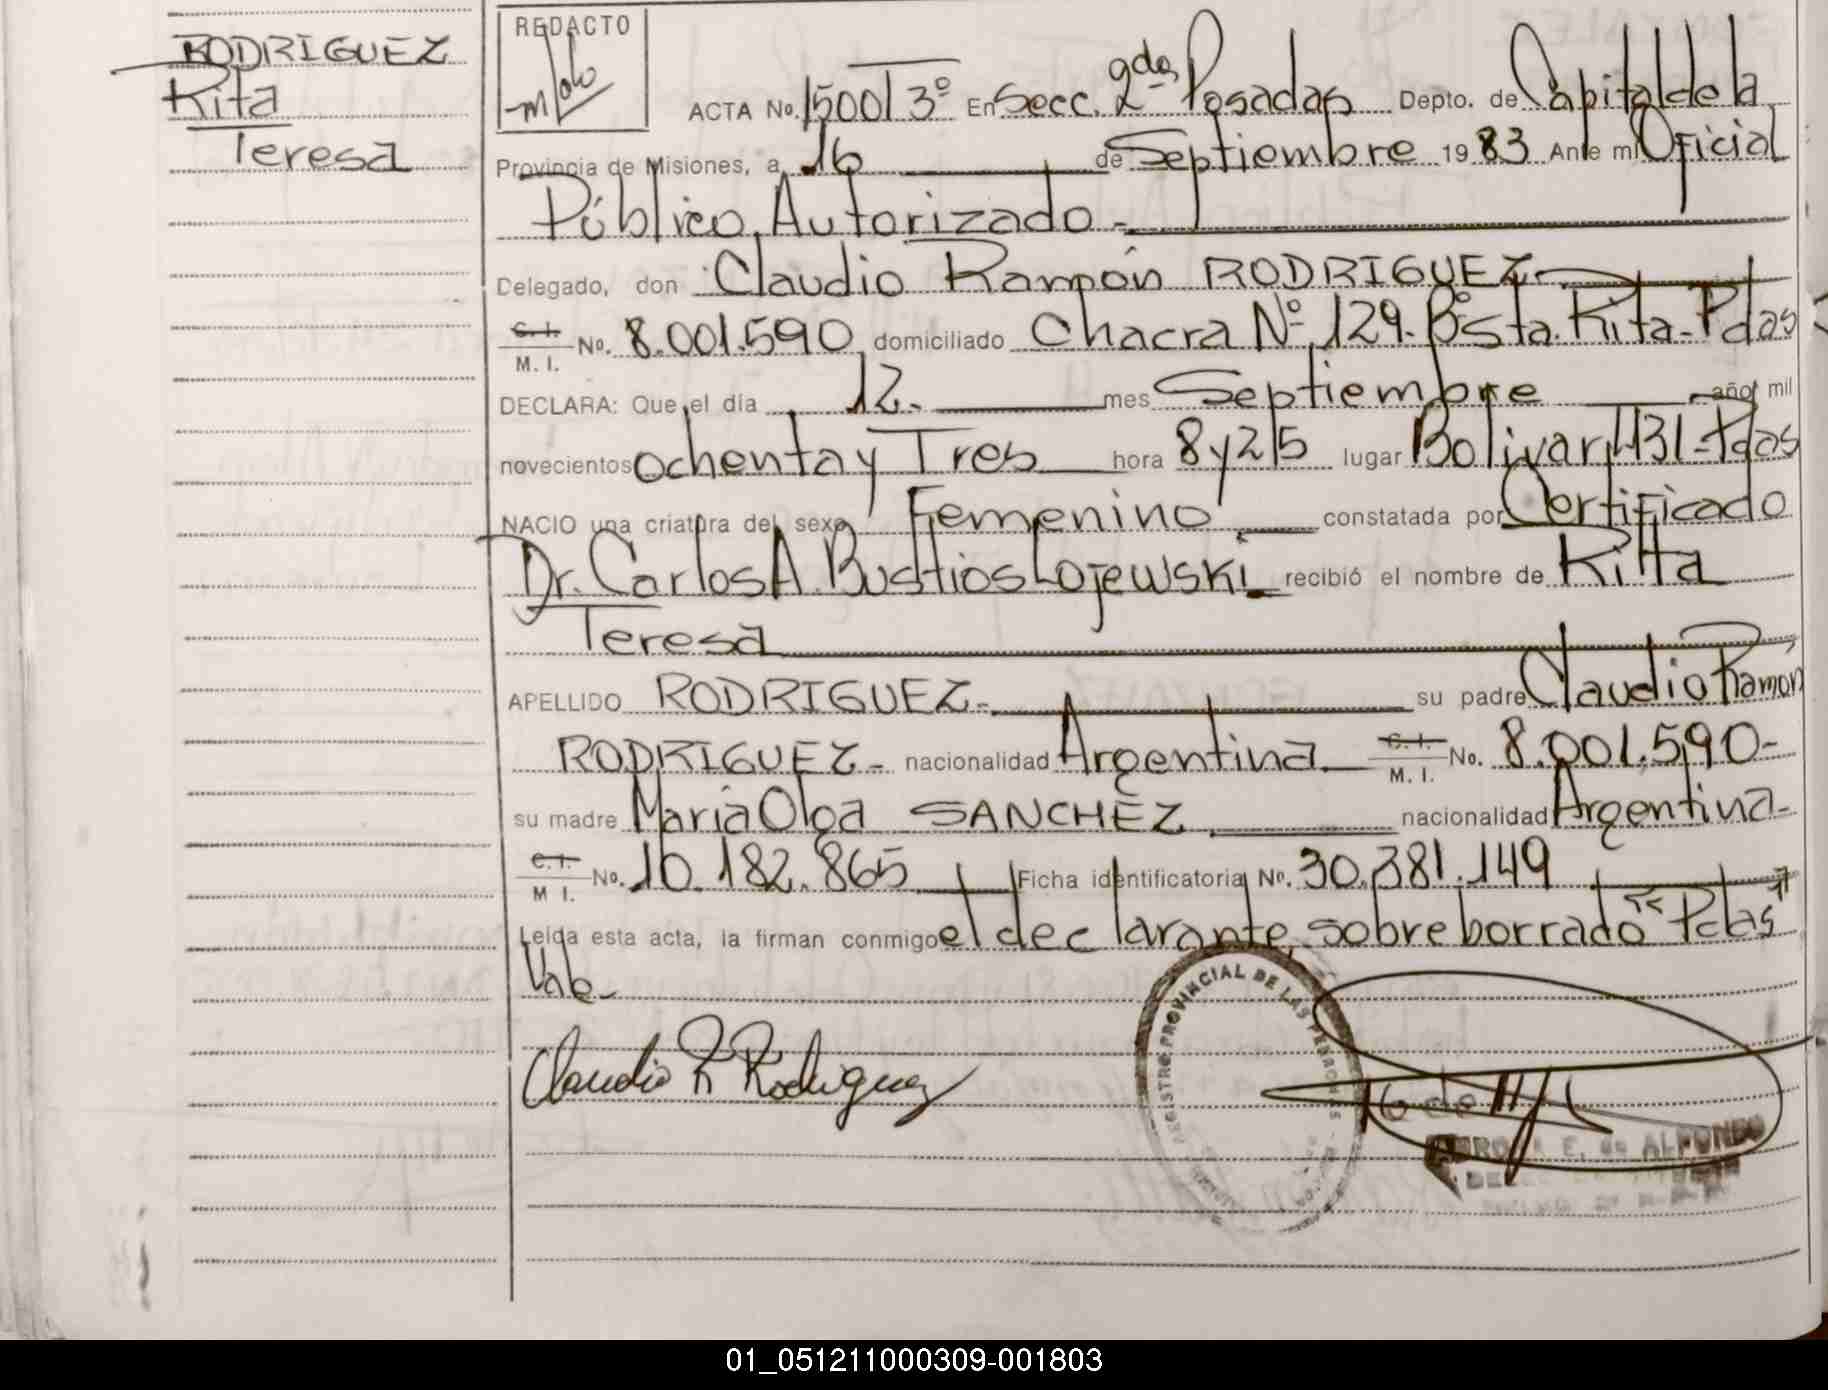 RODRIGUEZ
Rita
Teresa
REDACTO
ACTA No. 1500 T 3º En Secc. 2da Posadas Depto. de Capital de la
Provincia de Misiones, a 16 de Septiembre 1983 Ante mi Oficial
Público Autorizado-
Delegado, don Claudio Ramón RODRIGUEZ
C. I. / M. I. No. 8.001.590 domiciliado Chacra Nº 129-Bº Sta. Rita-Pdas
DECLARA: Que el día 12- mes Septiembre año mil
novecientos ochenta y Tres hora 8 y 25 lugar Bolivar 1131-Pdas
NACIO una criatura del sexo Femenino constatada por Certificado
Dr. Carlos A. Bustios Lojewski recibió el nombre de Rita
Teresa
APELLIDO RODRIGUEZ- su padre Claudio Ramón
RODRIGUEZ- nacionalidad Argentina C. I. / M. I. No. 8.001.590-
su madre Maria Olga SANCHEZ nacionalidad Argentina-
C. I. / M I. No. 10.182.865 Ficha identificatoria No. 30.381.149
Leida esta acta, la firman conmigo el declarante, sobre borrado "Pdas"
Vale-
Claudio R Rodriguez
REGISTRO PROVINCIAL DE LAS PERSONAS
E. de ALFONSO
01_051211000309-001803